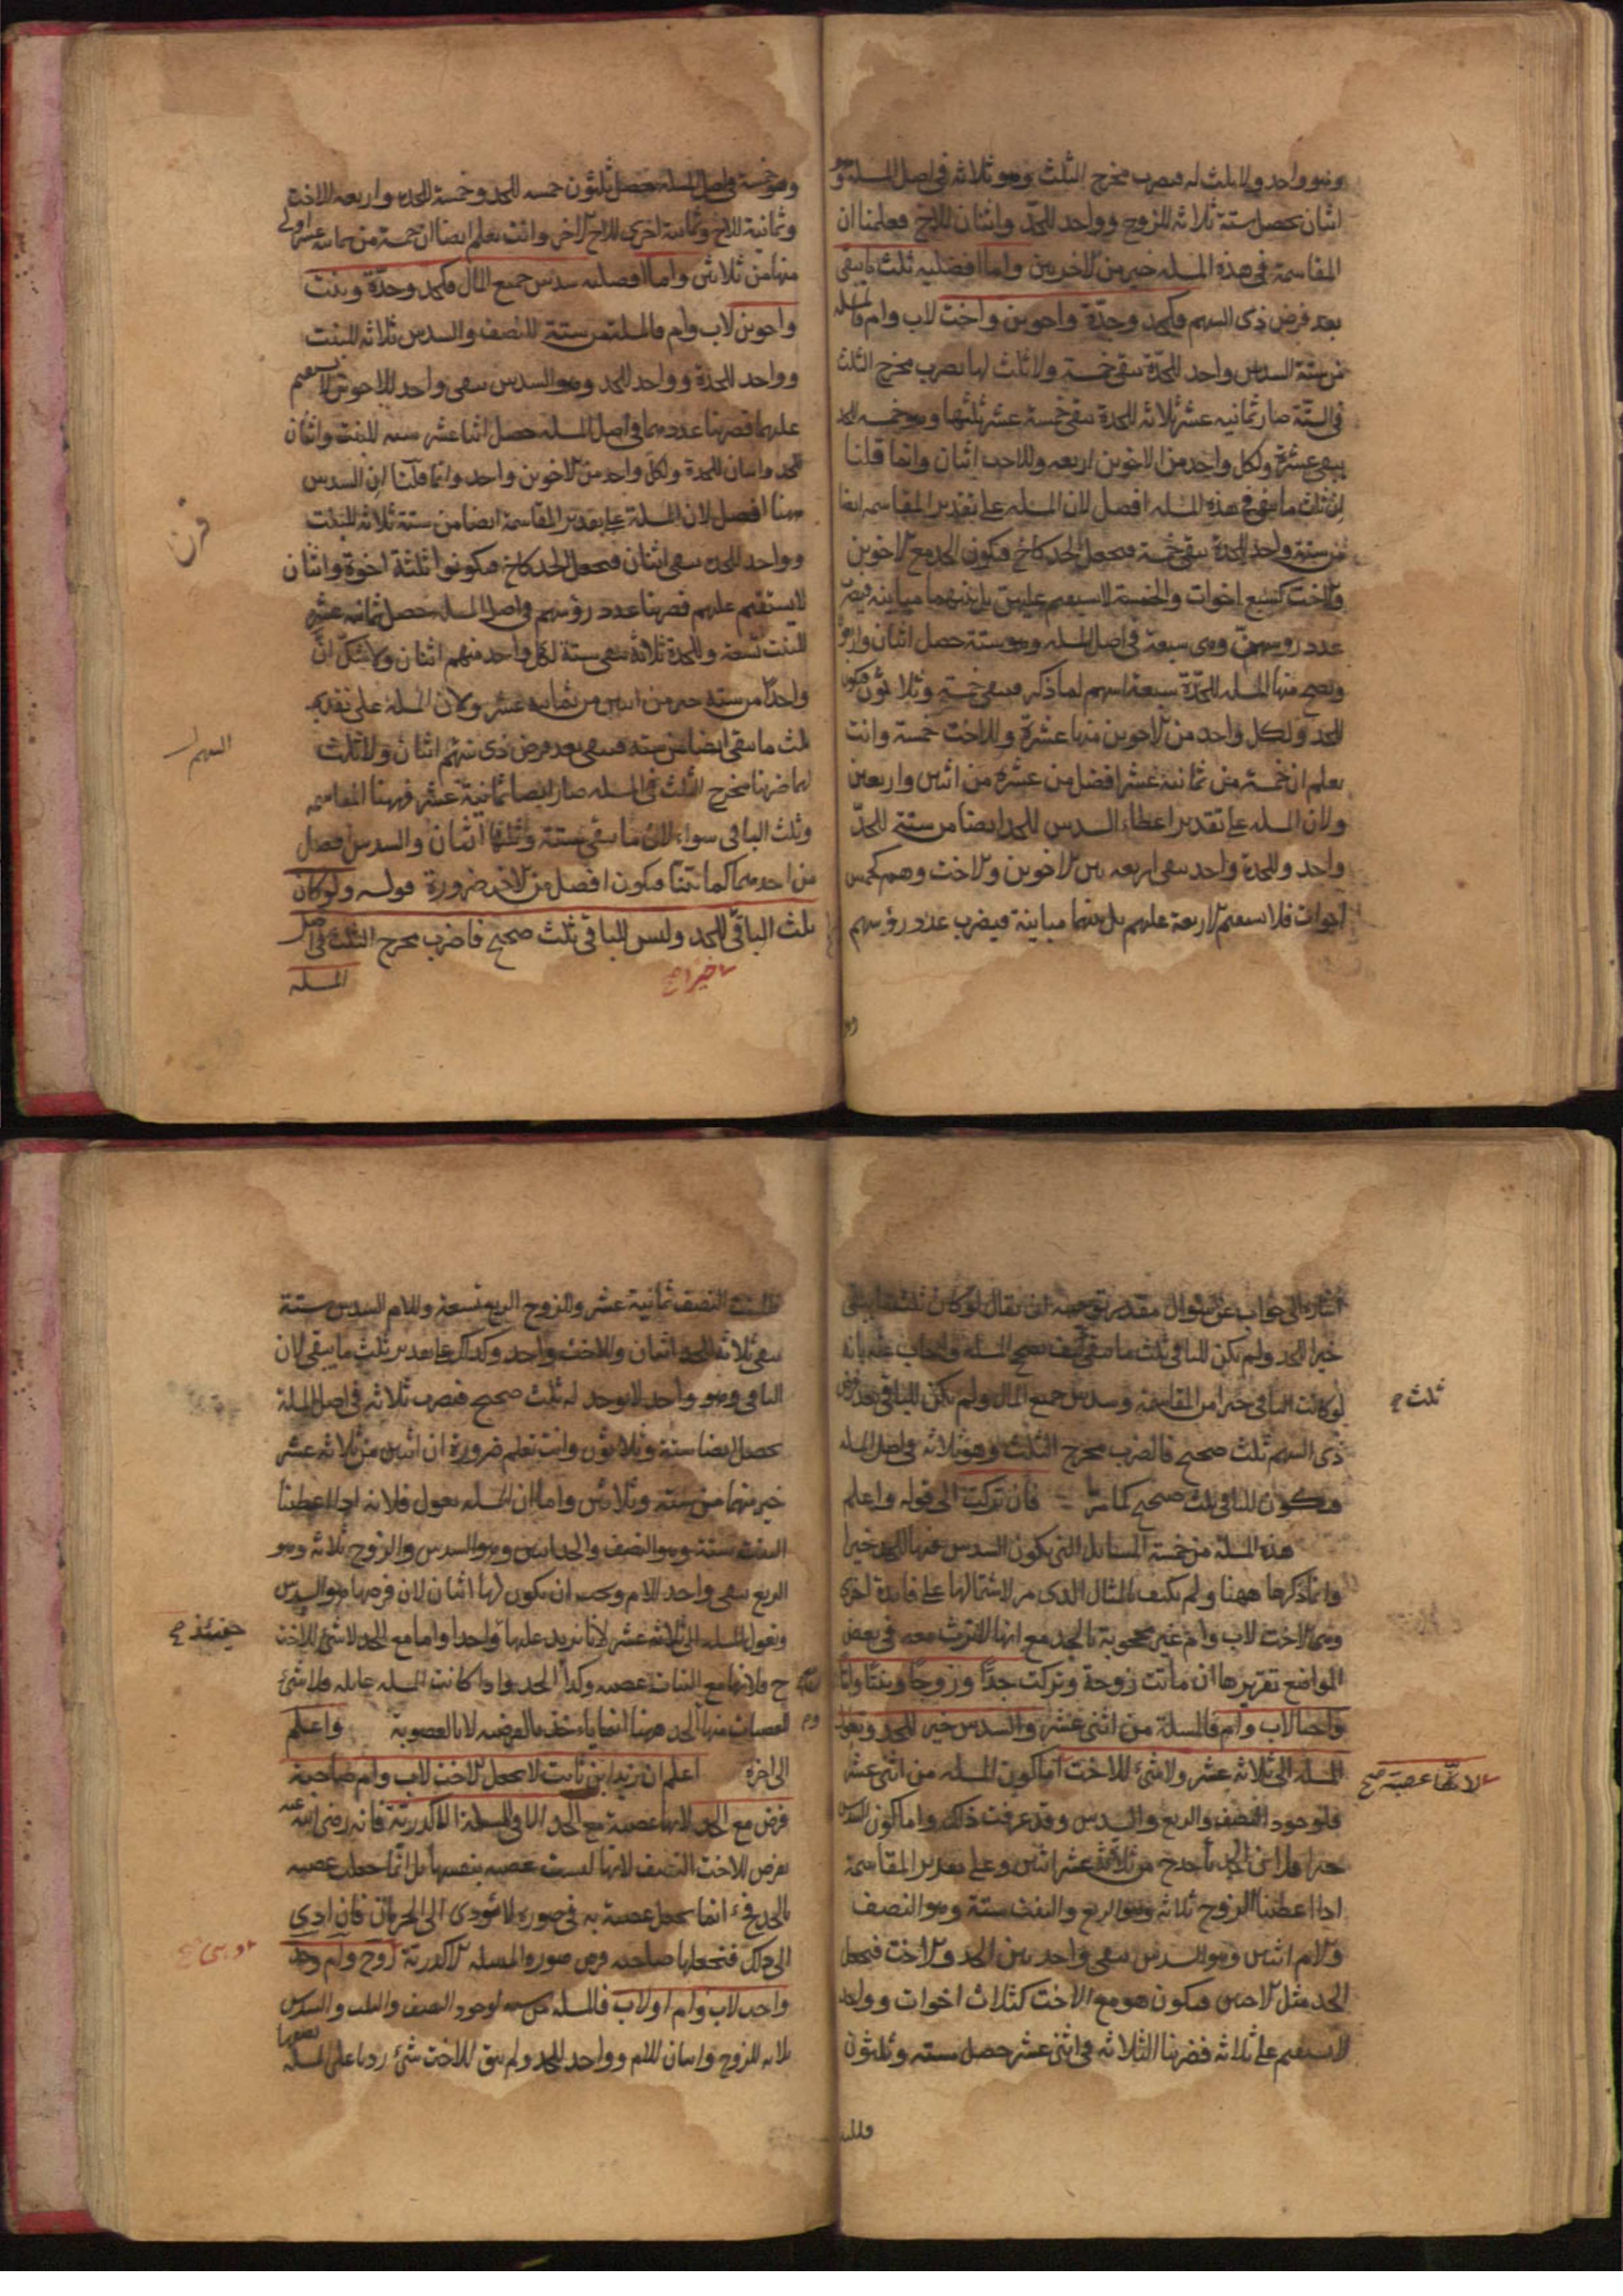 وهو واحد ولا ثلث له فيضرب مخرج الثلث وهو ثلاثه في اصل المسله وهو
اثنان يحصل ستة ثلاثه للزوج وواحد للجدّ واثنان للاخ فعلمنا ان
المقاسمة في هذه المسله خير من الاخرين واما افضليه ثلث ما يبقى
بعد فرض ذى السهم فكجد وجدّة واخوين واخت لاب وام فالمسله
من ستّة السدس واحد للجدّة يبقى خمسة ولا ثلث لها يضرب مخرج الثلث
في الستّة صار ثمانيه عشر ثلاثه للجدة يبقى خمسة عشر ثلثها وهو خمسه للجد
يبقى عشرة ولكل واحد من الاخوين اربعه وللاخت اثنان وانما قلنا
ان ثلث ما يبقى في هذه المسله افضل لان المسله على تقدير المقاسمه ايضا
من ستة واحد للجدة يبقى خمسة فتجعل الجد كاخ فيكون الجد مع الاخوين
والاخت كسبع اخوات والخمسة لا يستقيم عليهن بل بينهما مباينه فيضرب
عدد روسهنّ وهى سبعة في اصل المسله وهو ستة حصل اثنان واربعون
وتصح منها المسله للجدّة سبعة اسهم لما ذكر فيبقى خمسة وثلاثون فيكون
للجد ولكل واحد من الاخوين منها عشرة وللاخت خمسة وانت
تعلم ان خمسة من ثمانية عشر افضل من عشرة من اثنين واربعين
ولان المسله على تقدير اعطاء السدس للجد ايضا من ستة للجدّ
واحد وللجدة واحد يبقى اربعه بين الاخوين والاخت وهم كخمس
اخوات فلا يستقيم الاربعة عليهم بل بينهما مباينة فيضرب عدد رؤسهم
وهو خمسة في اصل المسله حصل ثلثون خمسه للجد وخمسة للجده واربعه للاخت
وثمانية للاخ وثمانية اخرى للاخ الاخر وانت تعلم ايضا ان خمسة من ثمانيه عشر اولى
منها من ثلاثين واما افضليه سدس جميع المال فكجد وجدّة وبنت
واخوين لاب وام فالمسلة من ستة للنصف والسدس ثلاثه للبنت
وواحد للجدة وواحد للجد وهو السدس يبقى واحد للاخوين لا يستقيم
عليهما فضربنا عددهما في اصل المسله حصل اثنا عشر سته للبنت واثنان
للجد واثنان للجدة ولكل واحد من الاخوين واحد وانما قلنا ان السدس
ههنا افضل لان المسلة على تقدير المقاسمة ايضا من ستة ثلاثه للبنت
وواحد للجده يبقى اثنان فتجعل الجد كاخ فيكونوا ثلثة اخوة واثنان
لا يستقيم عليهم فضربنا عدد رؤسهم في اصل المسله حصل ثمانيه عشر
للبنت تسعة وللجدة ثلاثة يبقى ستة لكل واحد منهم اثنان ولا شك انّ
واحدا من ستة خير من اثنين من ثمانيه عشر ولان المسلة على تقدير
ثلث ما يبقى ايضا من سته فيبقى بعد فرض ذى سهم اثنان ولا ثلث
السهم
لهما ضربنا مخرج الثلث في المسله صار ايضا ثمانية عشر فههنا المقاسمه
وثلث الباقى سواء لان ما بقي ستة وثلثها اثنان والسدس افضل
من احدهما كما بيّنا فيكون افضل من الاخر ضرورة قوله ولو كان
ثلث الباقى للجد وليس للباقى ثلث صحيح فاضرب مخرج الثلث في اصل
المسله
خيرا صح
اشارة الى جواب عن سؤال مقدر توجيهه ان يقال لو كان ثلث ما يبقى
خيرا للجد ولم يكن للباقى ثلث ما يبقى كيف تصح المسله واجاب عنه بانه
لو كانت الباقى خيرا من المقاسمة وسدس جميع المال ولم يكن للباقى بعد فرض
ثلث صح
ذى السهم ثلث صحيح فالضرب مخرج الثلث وهو ثلاثه في اصل المسله
فيكون للباقى ثلث صحيح كما مرّ فان تركت الى قوله واعلم
هذه المسلة من خمسة المسائل التى يكون السدس فيها للجد خيرا
وانما ذكرها ههنا ولم يكتف بالمثال الذى مر لاشتمالها على فايدة اخرى
وهى الاخت لاب وام غير محجوبة بالجد مع انها لا ترث معه في بعض
المواضع تقريرها ان ماتت زوجة وتركت جدّا وزوجا وبنتا وامّا
واختا لاب وام فالمسلة من اثنى عشر والسدس خير للجد وتعول
المسله الى ثلاثه عشر ولا شئ للاخت اما كون المسله من اثنى عشر
لانّها عصبة صح
فلوجود النصف والربع والسدس وقد عرفت ذلك واما كون السدس
خيرا فلان الجد ياخذ ح من ثلاثة عشر اثنين وعلى تقدير المقاسمة
اذا اعطينا الزوج ثلاثه وهو الربع والبنت ستة وهو النصف
والام اثنين وهو السدس يبقى واحد بين الجد والاخت فتجعل
الجد مثل الاختين فيكون هو مع الاخت كثلاث اخوات وواحد
لا يستقيم على ثلاثه فضربنا الثلاثه في اثنى عشر حصل سته وثلثون
فللبنت
فللبنت النصف ثمانية عشر وللزوج الربع تسعة وللام السدس ستة
يبقى ثلاثه للجد اثنان وللاخت واحد وكذلك على تقدير ثلث ما يبقى لان
الباقى وهو واحد لا يوجد له ثلث صحيح فضرب ثلاثه في اصل المسلة
يحصل ايضا ستة وثلاثون وانت تعلم ضرورة ان اثنين من ثلاثه عشر
خير منهما من سته وثلاثين واما ان المسله تعول فلانه اذا اعطينا
البنت ستة وهو النصف والجد اثنين وهو السدس والزوج ثلاثه وهو
الربع يبقى واحد للام ويجب ان يكون لها اثنان لان فرضها هو السدس
وتعول المسله الى ثلاثة عشر لانا نزيد عليها واحدا واما مع الجد لا شئ للاخت
حينئذ صح
ح فلانها مع البنات عصبه وكذا الجد واذا كانت المسله عايله فلا شئ
للعصبات منها والجد ههنا انما ياخذ بالفرضيه لا بالعصوبة واعلم
الى اخره اعلم ان زيد ابن ثابت لا يجعل الاخت لاب وام صاحبة
فرض مع الجد لانها عصبة مع الجد الا في المسلة الاكدرية فانه رضى الله عنه
يفرض للاخت النصف لانها ليست عصبه بنفسها بل انما جعلت عصبه
بالجد فح انما يجعل عصبة به في صورة لا تؤدى الى الحرمان فان ادى
الى ذلك فتجعلها صاحبه فرض صوره المسله الاكدرية زوج وام وجد
واخت لاب وام او لاب فالمسله من سته لوجود النصف والثلث والسدس
ثلاثه للزوج واثنان للام وواحد للجد ولم يبق للاخت شئ زدنا على المسله نصفها